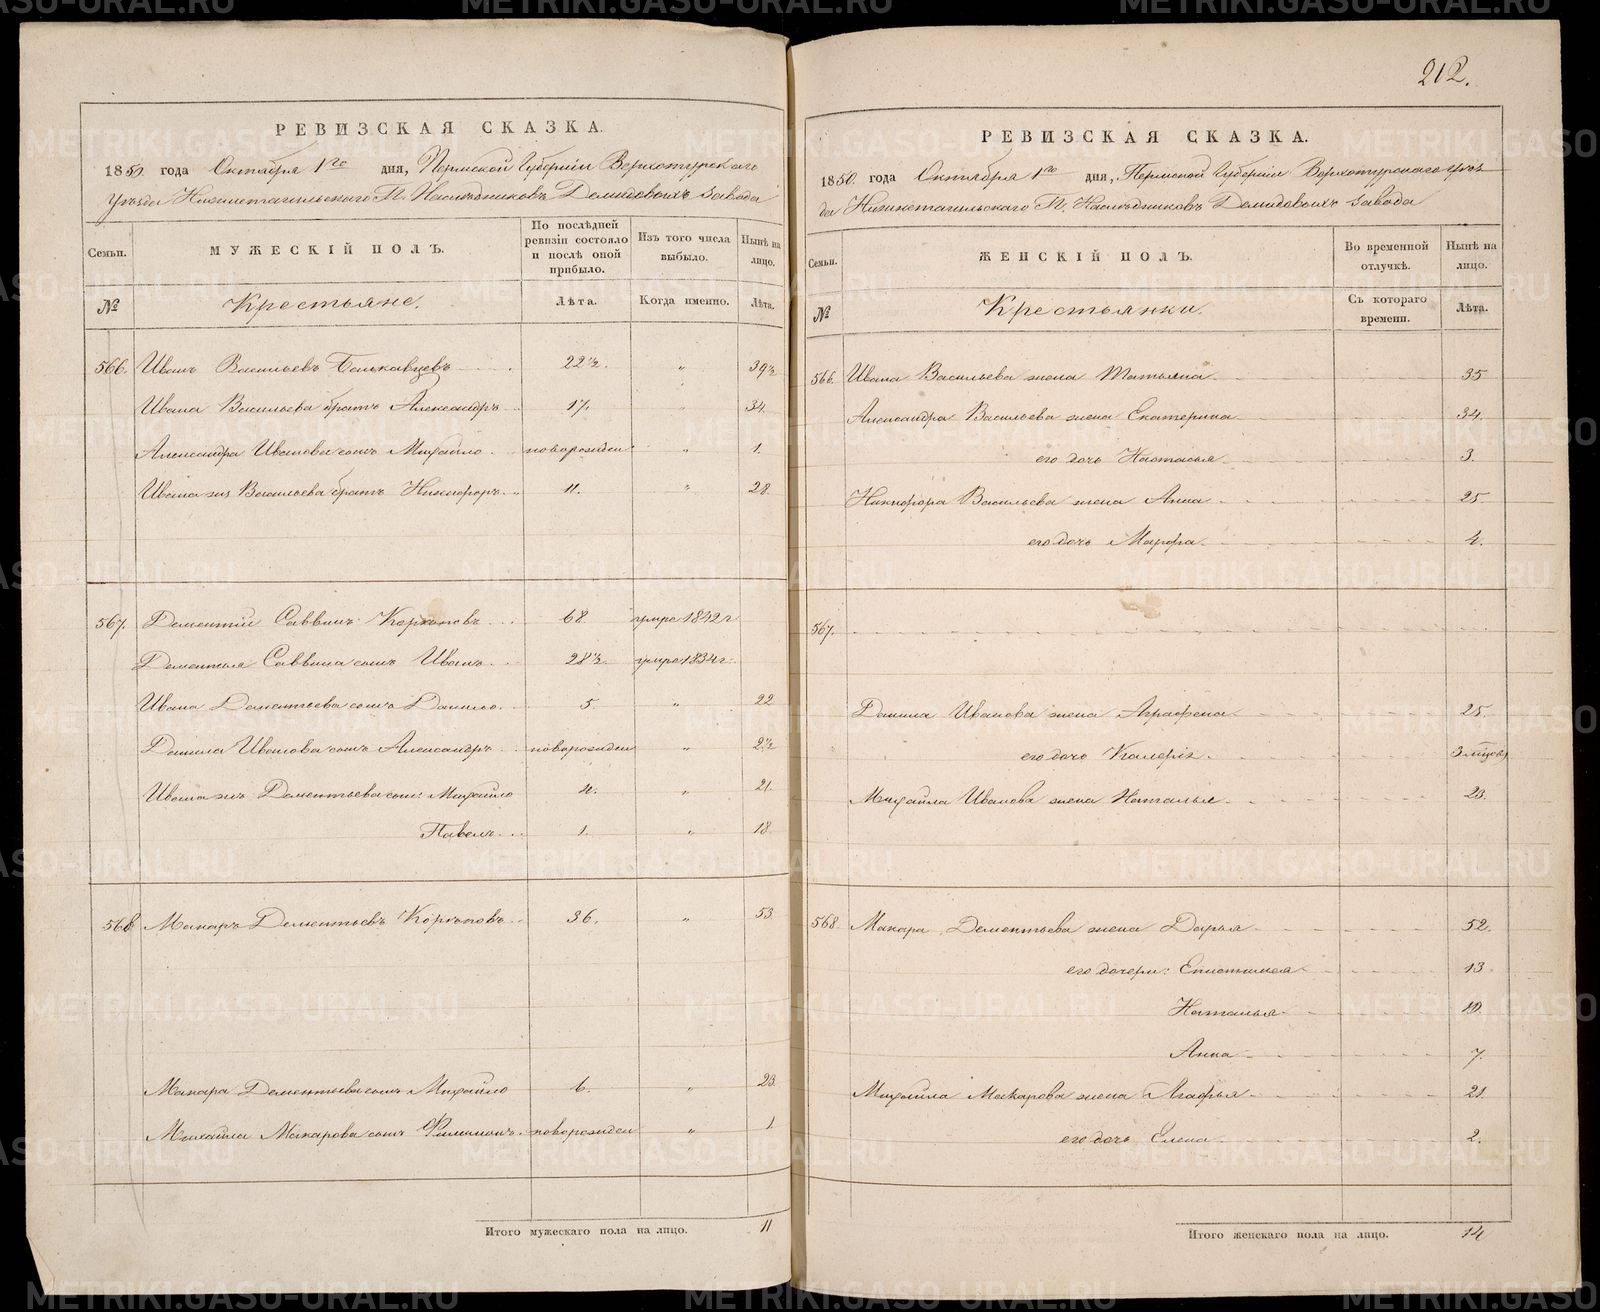 212.
РЕВИЗСКАЯ СКАЗКА.
1850. года Октября 1го дня, Пермской Губерніи Верхотурскаго
уѣзда Нижнетагильскаго Г.г. Наслѣдниковъ Демидовыхъ завода
Семьи.
МУЖЕСКІЙ ПОЛЪ.
По послѣдней ревизіи состояло и послѣ оной прибыло.
Изъ того числа выбыло.
Нынѣ на лицо.
№ Крестьяне. Лѣта. Когда именно. Лѣта.
566. Иванъ Васильевъ 22½. " 39½
Ивана Васильева братъ Александръ 17. " 34.
Александра Иванова сынъ Михайло новорожден " 1.
Ивана жъ Васильева братъ Никифоръ 11. " 28
567. Дементій Саввинъ Корюковъ 68. умре 1842 г
Дементья Саввина сынъ Иванъ 28½. умре 1834 г.
Ивана Дементьева сынъ Данило 5. " 22
Данила Иванова сынъ Александръ новорожден " 2½
Ивана жъ Дементьева сын: Михайло 4. " 21.
Павелъ 1. " 18
568 Макаръ Дементьевъ Корюковъ 36. " 53.
Макара Дементьева сынъ Михайло 6. " 23.
Михайла Макарова сынъ Филимонъ новорожден " 1
Итого мужескаго пола на лицо. 11
РЕВИЗСКАЯ СКАЗКА.
1850. года Октября 1го дня, Пермской Губерніи Верхотурскаго уѣз
да Нижнетагильскаго Г.г. Наслѣдниковъ Демидовыхъ завода
Семьи.
ЖЕНСКІЙ ПОЛЪ.
Во временной отлучкѣ.
Нынѣ на лицо.
№ Крестьянки. Съ котораго времени. Лѣта.
566. Ивана Васильева жена Татьяна 35
Александра Васильева жена Екатерина 34.
его дочь Настасья 3.
Никифора Васильева жена Анна 25.
его дочь Марфа 4.
567.
Данила Иванова жена Аграфена 25.
его дочь Калерія 3 мѣсяцовъ
Михайла Иванова жена Наталья 23.
568. Макара Дементьева жена Дарья 52.
его дочери: Епистимея 13.
Наталья 10.
Анна 7.
Михайла Макарова жена Агафья 21
его дочь Елена 2.
Итого женскаго пола на лицо. 14
METRIKI.GASO-URAL.RU